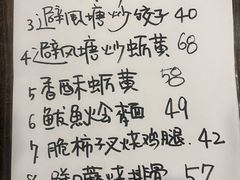 3避风塘炒饺子 40
4避风塘炒蛎黄 68
5香酥蛎黄 58
6鲅魚烩麵 49
7脆柿子叉烧鸡腿.42
烧排骨 57